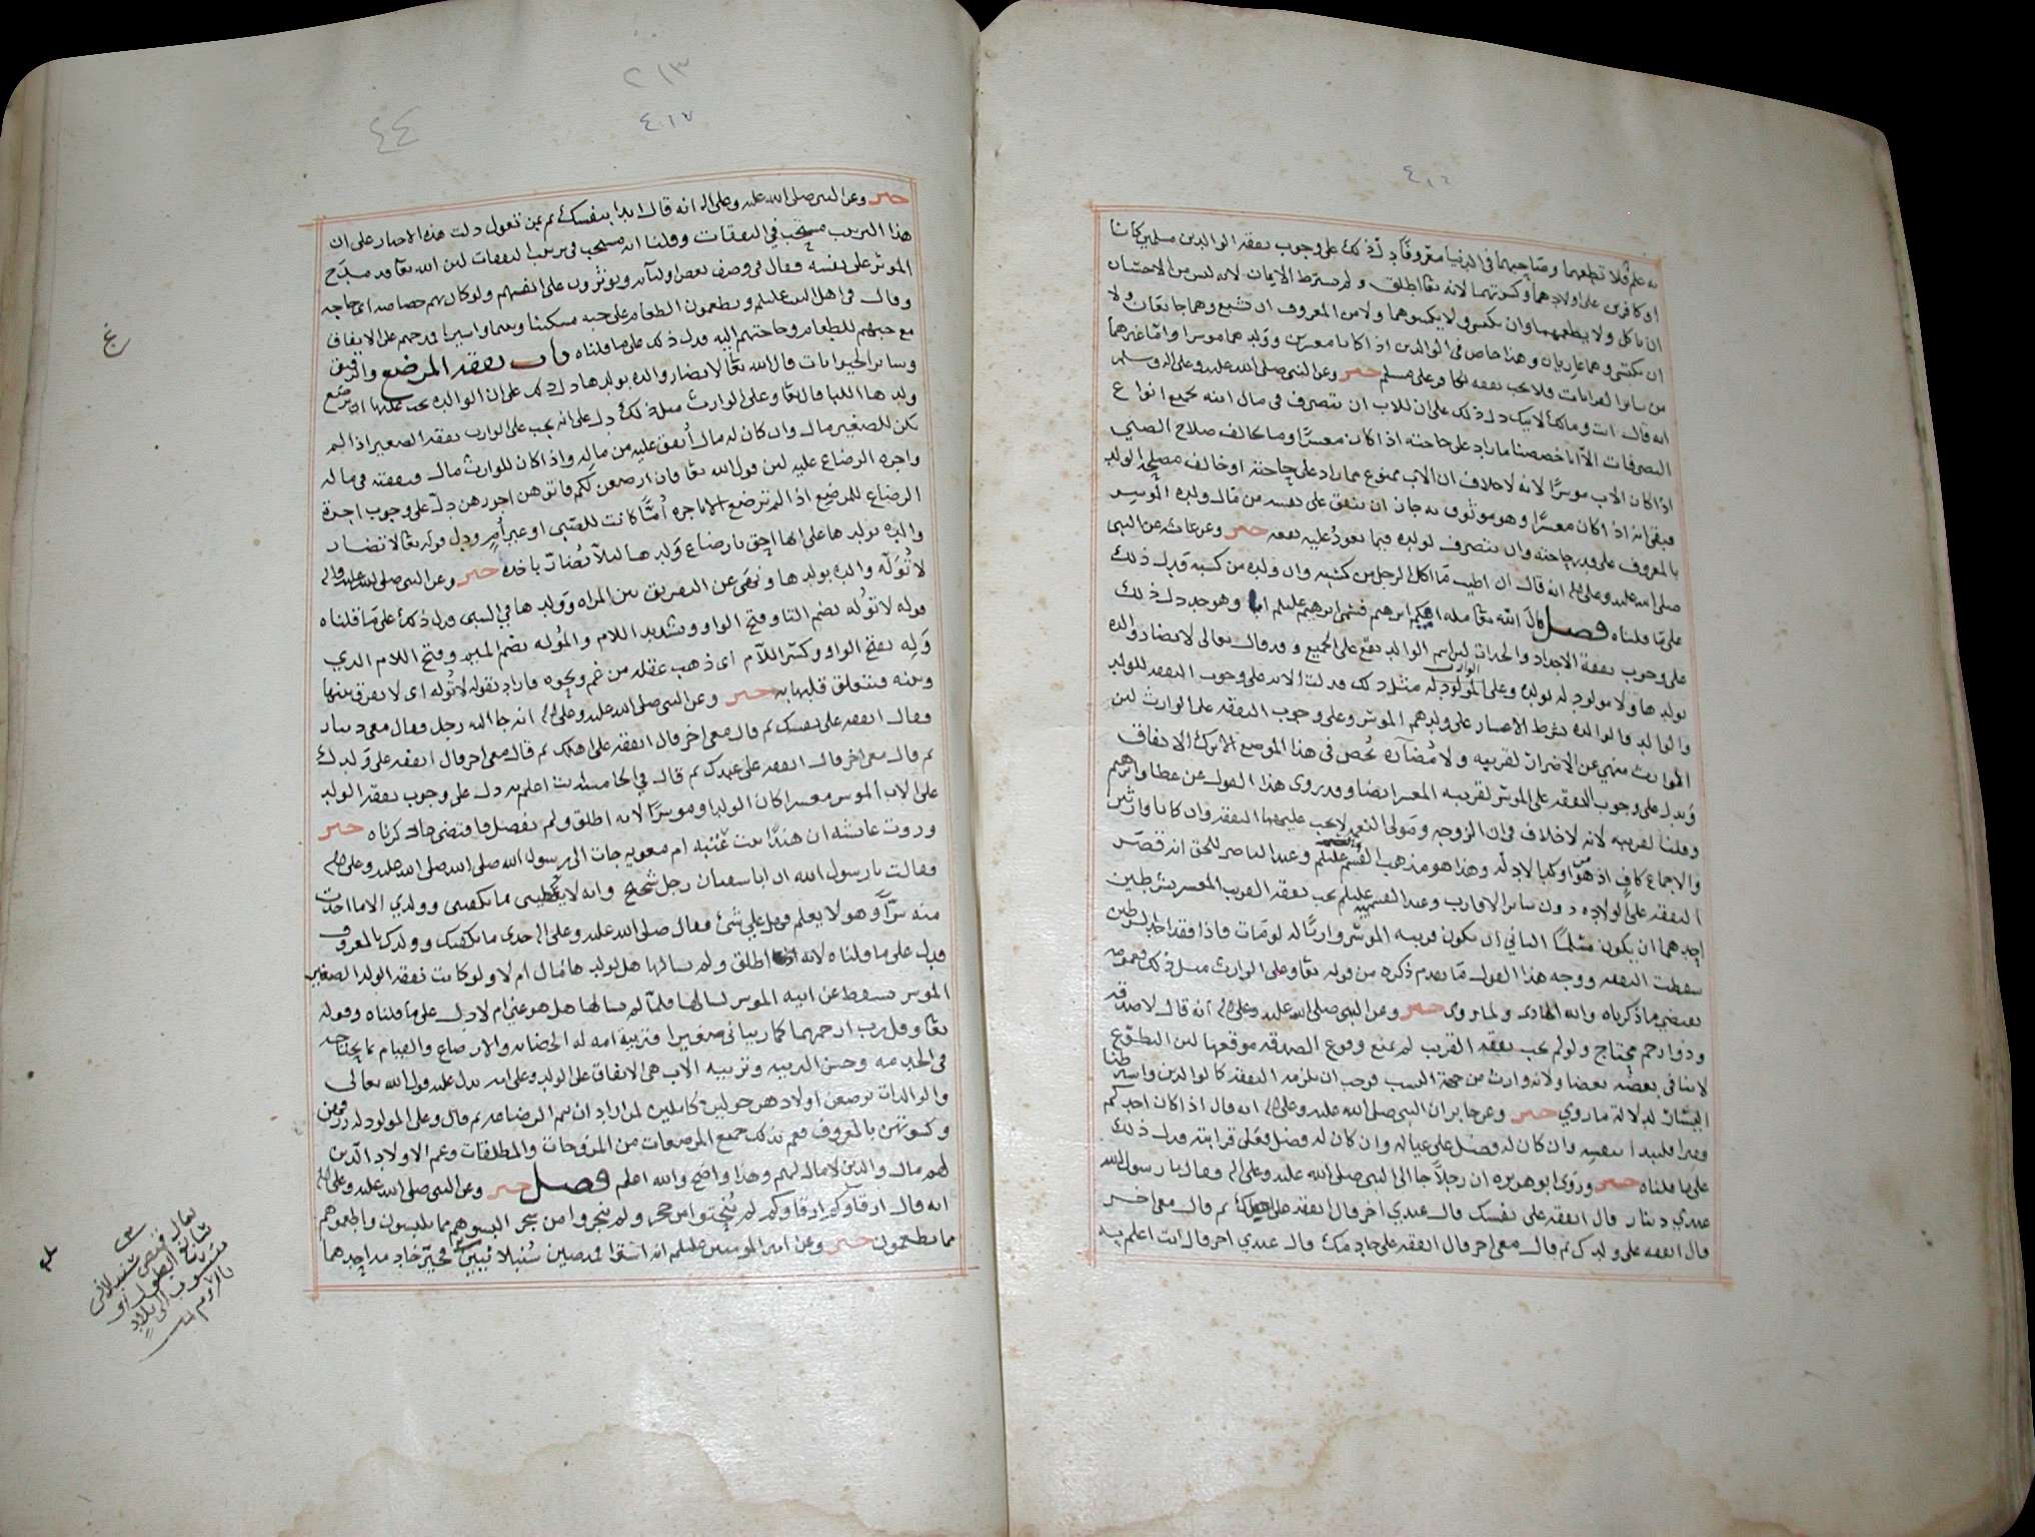 ٤١٦
به علم فلا تطعهما وصاحبهما في الدنيا معروفا دل ذلك على وجوب نفقه الوالدين مسلمين كانا
او كافرين على اولادهما وكسوتهما لانه تعا اطلق ولم يشترط الايمان لانه ليس من الاحسان
ان ياكل ولا يطعمهما وان يكتسي ولا يكسوهما ولا من المعروف ان يشبع وهما جايعان ولا
ان يكتسي وهما عاريان وهذا خاص في الوالدين اذا كانا معسرين وولدهما موسرا واما غيرهما
من ساير القرابات فلا يجب نفقه الكافر على مسلم خبر وعن النبي صلى الله عليه وعلى اله وسلم
انه قال انت ومالك لابيك دل ذلك على ان للاب ان يتصرف في مال ابنه بجميع انواع
التصرفات الا انا خصصنا ما زاد على حاجته اذا كان معسرا وما خالف صلاح الصبي
اذا كان الاب موسرا لانه لا خلاف ان الاب ممنوع مما زاد على حاجته او خالف مصلحة الولد
فبقي انه اذا كان معسرا وهو موثوق به جاز ان ينفق على نفسه من مال ولده الموسر
بالمعروف على قدر حاجته وان يتصرف لولده فيما يعود عليه نفعه خبر وعن عائشه عن النبي
صلى الله عليه وعلى اله انه قال ان اطيب ما اكل الرجل من كسبه وان ولده من كسبه فدل ذلك
على ما قلناه فصل قال الله تعا مله ابيكم ابرهيم فسمى ابرهيم عليلم ابا وهو جد دل ذلك
على وجوب نفقة الاجداد والجدات لان اسم الوالد يقع على الجميع وقد قال تعالى لا تضار والده
بولدها ولا مولود له بولده وعلى الوارث مثل ذلك فدلت الايه على وجوب النفقه للولد
والوالد والوالده بشرط الاعسار على ولدهم الموسر وعلى وجوب النفقه على الوارث لان
الوارث منهي عن الاضرار لقريبه ولا مضآرة تخص في هذا الموضع الا ترك الانفاق
ويدل على وجوب النفقه على الموسر لقريبه المعسر ايضا وقد روى هذا القول عن عطا وابرهيم
وقلنا لقريبه لانه لا خلاف في ان الزوجه ومولى النعم لا يجب عليهما النفقه وان كانا وارثين
والاجماع كاف وهذا هو مذهب القسم عليلم وعند الناصر للحق انه قصر
النفقه على الاولاد دون ساير الاقارب وعند القسم عليلم يجب نفقه القريب المعسر بشرطين
احدهما ان يكون مسلما الثاني ان يكون قريبه الموسر وارثا له لو مات فاذا فقد احد الشرطين
سقطت النفقه ووجه هذا القول ما تقدم ذكره من قوله تعا وعلى الوارث مثل ذلك فعمومه
يقتضي ما ذكرناه وانه الهادي ولما روى خبر وعن النبي صلى الله عليه وعلى اله انه قال لا صدقه
وذوا رحم محتاج ولو لم يجب نفقه القريب لم يمنع وقوع الصدقه موقعها لان التطوع
لا ينافي بعضه بعضا ولانه وارث من جهة النسب فوجب ان يلزمه النفقه كالوالدين واشترطنا
اليسار لدلالة ما روي خبر وعن جابر ان النبي صلى الله عليه وعلى اله انه قال اذا كان احدكم
فقيرا فليبدا بنفسه وان كان له فضل على عياله وان كان له فضل فعلى قرابته فدل ذلك
على ما قلناه خبر وروى ابو هريره ان رجلا جا الى النبي صلى الله عليه وعلى اله وقال يا رسول الله
عندي دينار قال انفقه على نفسك قال عندي اخر قال انفقه على اهلك ثم قال معي اخر
قال انفقه على ولدك ثم قال معي اخر قال انفقه على خادمك قال عندي اخر قال انت اعلم به
٢١٣
٤١٧
٤٤
خبر وعن النبي صلى الله عليه وعلى اله انه قال ابدا بنفسك ثم بمن تعول دلت هذه الاخبار على ان
هذا الترتيب مستحب في النفقات وقلنا انه مستحب في ترتيب النفقات لان الله تعا قد مدح
الموثر على نفسه فقال في وصف بعض اوليآئه ويوثرون على انفسهم ولو كان بهم خصاصه اي حاجه
وقال في اهل البيت عليلم ويطعمون الطعام على حبه مسكينا ويتيما واسيرا فمدحهم على الانفاق
مع حبهم للطعام وحاجتهم اليه فدل ذلك على ما قلناه باب نفقه المرضع والرقيق
وساير الحيوانات قال الله تعا لا تضار والده بولدها دل ذلك على ان الوالده يجب عليها ان ترضع
ولدها اللبا قال تعا وعلى الوارث مثل ذلك دل على انه يجب على الوارث نفقه الصغير اذا لم
يكن للصغير مال وان كان له مال انفق عليه من ماله واذا كان للوارث مال فنفقته في ماله
واجره الرضاع عليه لان قول الله تعا فان ارضعن لكم فاتوهن اجورهن دل على وجوب اجرة
الرضاع للمرضع اذا لم ترضع الا باجره أمًّا كانت للصبي او غير أمٍ ودل قوله تعا لا تضار
والده بولدها على انها احق بارضاع ولدها لئلا تضارّ باخذه خبر وعن النبي صلى الله عليه واله
لا تُولَّه والده بولدها ونهى عن التفريق بين المراه وولدها في السبي فدل ذلك على ما قلناه
قوله لا تُوله بضم التا وفتح الواو وتشديد اللام والمُوله بضم الميم وفتح اللام الذي
وَلِه بفتح الواو وكسر اللام اي ذهب عقله من غم ونحوه فاراد بقوله لا تُوله اي لا يفرق بينها
وبينه فيتعلق قلبها به خبر وعن النبي صلى الله عليه وعلى اله انه جا اليه رجل فقال معي دينار
فقال انفقه على نفسك ثم قال معي اخر قال انفقه على اهلك ثم قال معي اخر قال انفقه على ولدك
ثم قال معي اخر قال انفقه على عبدك ثم قال في الخامس انت اعلم به دل على وجوب نفقه الولد
على الاب الموسر معسرا كان الولد او موسرا لانه اطلق ولم يفصل فاقتضى ما ذكرناه خبر
وروت عائشه ان هندا بنت عُتبه ام معويه جات الى رسول الله صلى الله صلى الله عليه وعلى اله
فقالت يا رسول الله ان ابا سفيان رجل شحيح وانه لا يعطيني ما يكفيني وولدي الا ما اخذت
منه سرًّا وهو لا يعلم فهل علي شئ فقال صلى الله عليه وعلى اله خذي ما يكفيك وولدك بالمعروف
فدل على ما قلناه لانه اطلق ولم يسالها هل لولدها مال ام لا ولو كانت نفقه الولد الصغير
الموسر تسقط عن ابيه الموسر لسالها فلما لم يسالها هل هو غني ام لا دل على ما قلناه وقوله
تعا وقل رب ارحمهما كما ربياني صغيرا وتربية امه له الحضانه والارضاع والقيام بما يحتاجه
في الخدمه وحسن التربيه وتربيه الاب هي الانفاق على الولد وعلى امه يدل عليه قول الله تعالى
والوالدات يرضعن اولادهن حولين كاملين لمن اراد ان يتم الرضاعه ثم قال وعلى المولود له رزقهن
وكسوتهن بالمعروف فعم بذلك جميع المرضعات من المزوجات والمطلقات وعم الاولاد الذين
لهم مال والذين لا مال لهم وهذا واضح والله اعلم فصل خبر وعن النبي صلى الله عليه وعلى اله
انه قال ارقآوكم ارقاوكم لم يُنحتوا من حجر ولم ينجروا من شجر البسوهم مما تلبسون واطعموهم
مما تطعمون خبر وعن امير المومنين عليلم انه اشترا قميصين سُنبلانيين فخيّر خادمه احدهما
غ
يقال قميص سنبلاني
سابغ الطول او
منسوب الى بلاد
بالروم